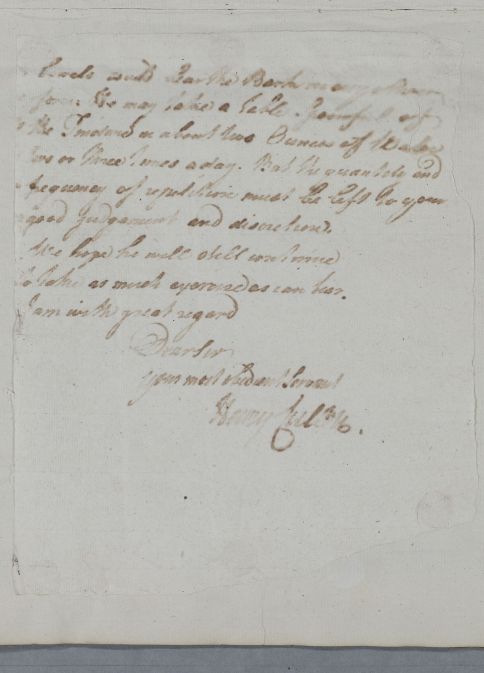 bowels would bear the Bark in any other
form. He may take a table spoonful off
the Tincture in about two Ounces off Water
two or three times a day. But the quantity and
frequency of repetition must be left to your
good Judgement and discretion.
We hope he will still continue
to take as much exercise as can bear.
I am with great regard
Dear Sir
your most obedient Servant
Henry Cullen.